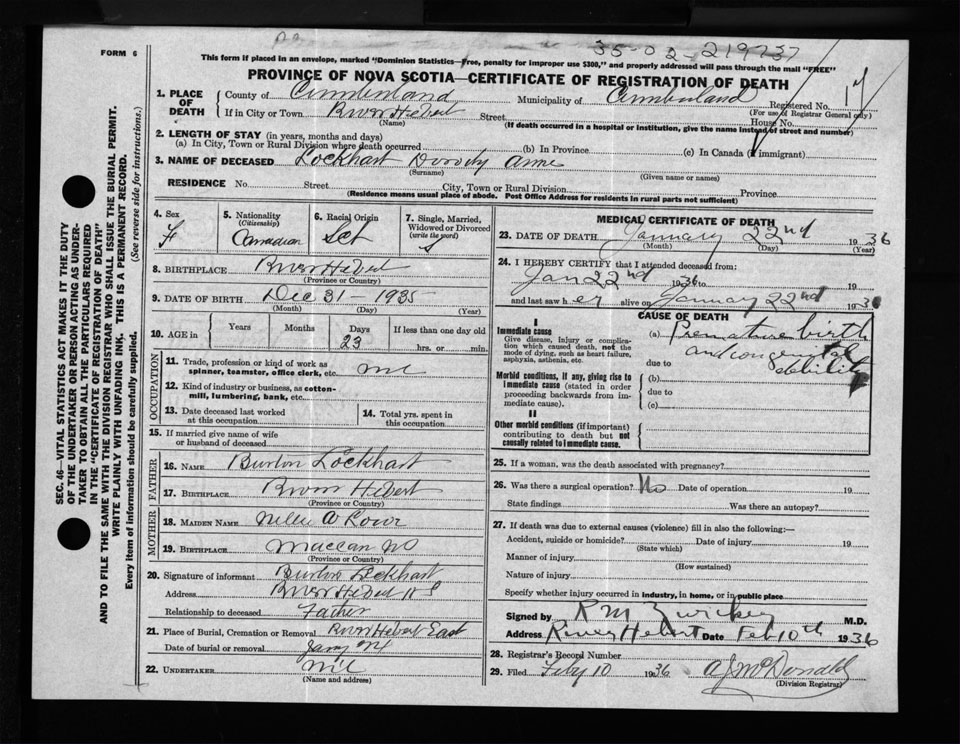 FORM 6
35-02-219737
This form if placed in an envelope, marked "Dominion Statistics—Free, penalty for improper use $300," and properly addressed will pass through the mail "FREE"
PROVINCE OF NOVA SCOTIA—CERTIFICATE OF REGISTRATION OF DEATH
1. PLACE OF DEATH
County of Cumberland Municipality of Cumberland Registered No.
(For use of Registrar General only)
If in City or Town River Hebert Street House No.
(Name) (If death occurred in a hospital or institution, give the name instead of street and number)
2. LENGTH OF STAY (in years, months and days)
(a) In City, Town or Rural Division where death occurred (b) In Province (c) In Canada (if immigrant)
3. NAME OF DECEASED Lockhart Dorothy Anne
(Surname) (Given name or names)
RESIDENCE No. Street City, Town or Rural Division Province
(Residence means usual place of abode. Post Office Address for residents in rural parts not sufficient)
4. Sex F
5. Nationality (Citizenship) Canadian
6. Racial Origin
7. Single, Married, Widowed or Divorced (write the word) S
8. BIRTHPLACE River Hebert
(Province or Country)
9. DATE OF BIRTH Dec 31 - 1935
(Month) (Day) (Year)
10. AGE in Years Months Days 23 If less than one day old hrs. or min.
OCCUPATION
11. Trade, profession or kind of work as spinner, teamster, office clerk, etc. nil
12. Kind of industry or business, as cotton-mill, lumbering, bank, etc.
13. Date deceased last worked at this occupation
14. Total yrs. spent in this occupation
15. If married give name of wife or husband of deceased
FATHER
16. NAME Burton Lockhart
17. BIRTHPLACE River Hebert
(Province or Country)
MOTHER
18. MAIDEN NAME A Lowe
19. BIRTHPLACE Maccan NS
(Province or Country)
20. Signature of informant Burton Lockhart
Address River Hebert N S
Relationship to deceased Father
21. Place of Burial, Cremation or Removal River Hebert East
Date of burial or removal
22. UNDERTAKER nil
(Name and address)
MEDICAL CERTIFICATE OF DEATH
23. DATE OF DEATH January 22nd 1936
(Month) (Day) (Year)
24. I HEREBY CERTIFY that I attended deceased from:
Jan 22nd 1936 to
and last saw her alive on January 22nd 1936
CAUSE OF DEATH
I
Immediate cause
Give disease, injury or complication which caused death, not the mode of dying, such as heart failure, asphyxia, asthenia, etc.
(a) Premature birth
and congenital debility
due to
Morbid conditions, if any, giving rise to immediate cause (stated in order proceeding backwards from immediate cause).
(b)
due to
(c)
II
Other morbid conditions (if important) contributing to death but not causally related to immediate cause.
25. If a woman, was the death associated with pregnancy?
26. Was there a surgical operation? No Date of operation 19
State findings Was there an autopsy?
27. If death was due to external causes (violence) fill in also the following:—
Accident, suicide or homicide? Date of injury 19
(State which)
Manner of injury
(How sustained)
Nature of injury
Specify whether injury occurred in industry, in home, or in public place
Signed by R M Zwicker M.D.
Address River Hebert Date Feb 10th 1936
28. Registrar's Record Number
29. Filed Feby 10 1936 A J McDonald
(Division Registrar)
SEC. 46—VITAL STATISTICS ACT MAKES IT THE DUTY
OF THE UNDERTAKER OR PERSON ACTING AS UNDER-
TAKER TO OBTAIN ALL THE PARTICULARS REQUIRED
IN THE "CERTIFICATE OF REGISTRATION OF DEATH"
AND TO FILE THE SAME WITH THE DIVISION REGISTRAR WHO SHALL ISSUE THE BURIAL PERMIT.
WRITE PLAINLY WITH UNFADING INK. THIS IS A PERMANENT RECORD.
Every item of information should be carefully supplied. (See reverse side for instructions.)